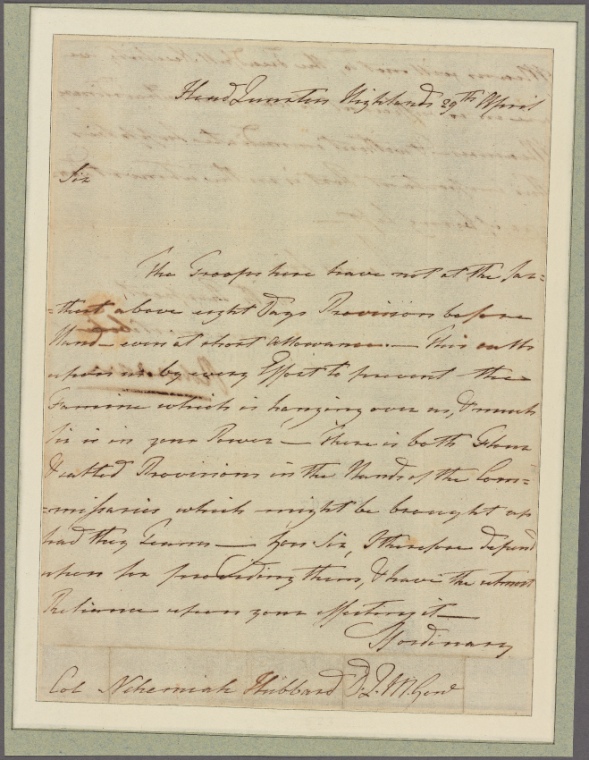 Head Quarters Highlands 29th April
Sir
The Troops here have not at the far=
=thest above eight Days Provision before
Hand even at short Allowance — This calls
upon us by every Effort to prevent the
Famine which is hanging over us, & much
Sir is in your Power — There is both Flour
& salted Provisions in the Hands of the Com=
=missaries which might be brought up
had they Teams — You Sir, I therefore depend
upon for providing them, & have the utmost
Reliance upon your effecting it —
Ordinary
Col Nehemiah Hubbard D.Q.M.Genl